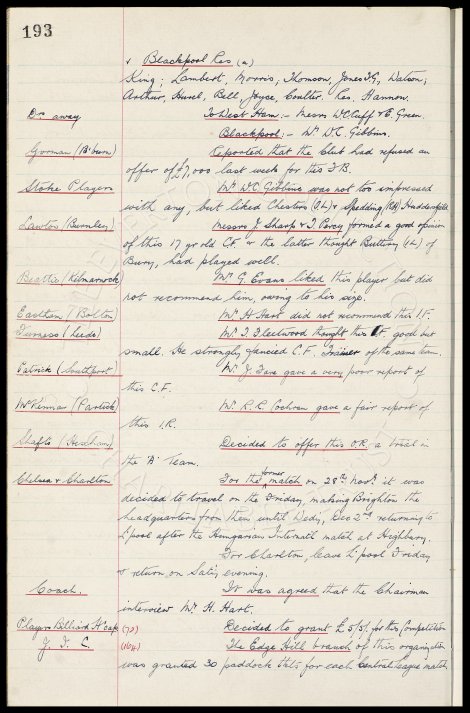 193
v Blackpool Res (a)
King; Lambert, Morris; Thomson, Jones T.G., Watson;
Arthur, Hurel, Bell, Joyce, Coulter. Res. Hannon.
Dr away To West Ham:- Messrs WC Cuff & E. Green.
Blackpool:- Mr W.C. Gibbins.
Gorman (B'burn) Reported that the Club had refused an
offer of £7,000 last week for this F.B.
Stoke Players Mr W.C. Gibbins was not too impressed
with any, but liked Chesters (O.L.) & Spedding (RB) Huddersfield
Lawton (Burnley) Messrs J. Sharp & T. Percy formed a good opinion
of this 17 yr old C.F. & the latter thought Buttery (I.L.) of
Bury, had played well.
Beattie (Kilmarnock) Mr G. Evans liked this player but did
not recommend him, owing to his size.
Eastham (Bolton) Mr H. Hart did not recommend this I.F.
Furness (Leeds) Mr T. Fleetwood thought this I.F. good but
small. He strongly fancied C.F. of the same team.
Patrick (Southport) Mr J. Tare gave a very poor report of
this C.F.
McKennan (Partick) Mr R.R. Cochran gave a fair report of
this I.R.
Shafto (Hexham) Decided to offer this O.R. a trial in
the 'A' Team.
Chelsea & Charlton For the former match on 28th Novr. it was
decided to travel on the Friday, making Brighton the
headquarters from then until Wedy, Dec 2nd returning to
L'pool after the Hungarian Internatl match at Highbury.
For Charlton, leave L'pool Friday
& return on Satdy evening.
Coach. It was agreed that the Chairman
interview Mr H. Hart.
Players Billiard H'cap (73) Decided to grant £5/5/- for this Competition
J. T. C. (164) The Edge Hill branch of this organisation
was granted 30 paddock tkts for each Central league match